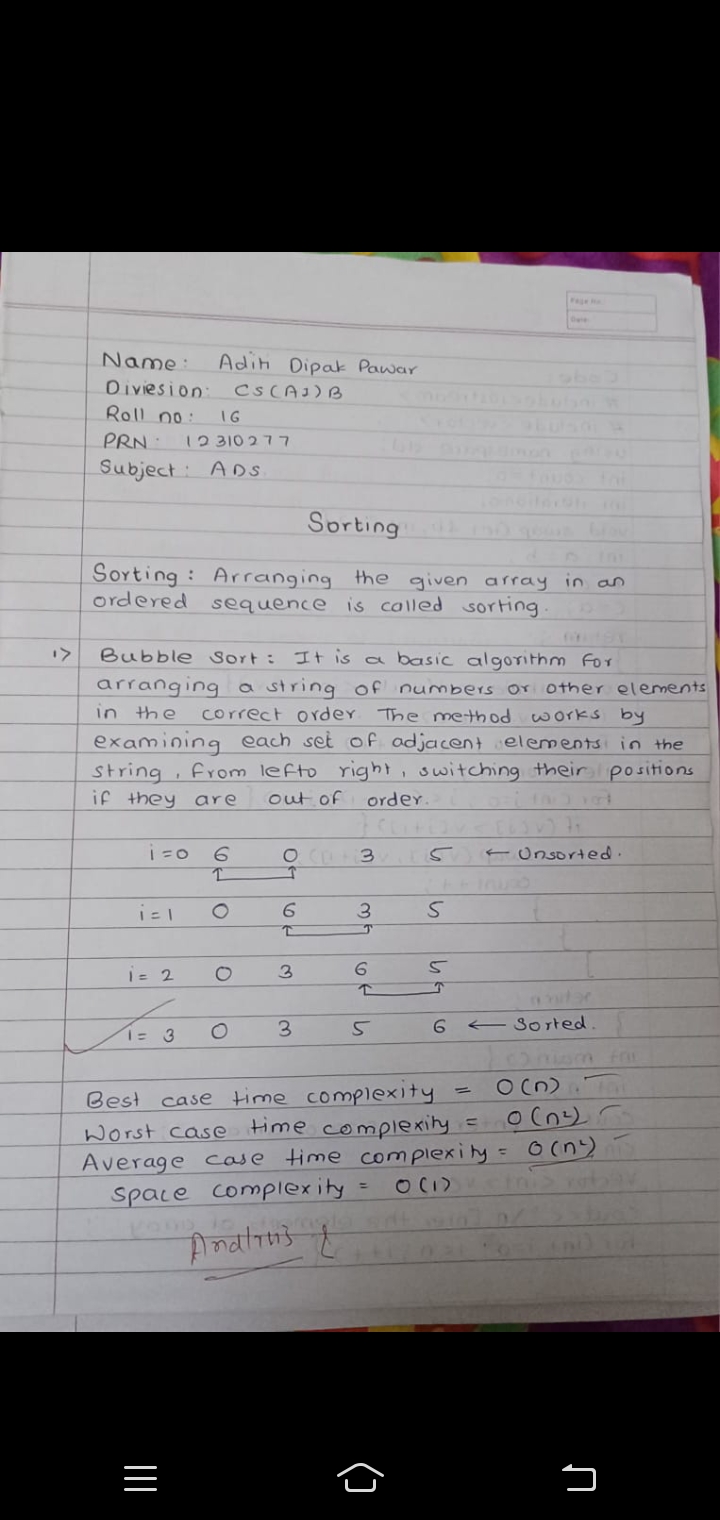 Page No:
Date:
Name: Aditi Dipak Pawar
Diviesion: CS(AI)B
Roll no: 16
PRN: 12310277
Subject: ADS.
Sorting
Sorting: Arranging the given array in an
ordered sequence is called sorting.
1> Bubble sort: It is a basic algorithm for
arranging a string of numbers or other elements
in the correct order The method works by
examining each set of adjacent elements in the
string, from lefto right, switching their positions
if they are out of order.
i=0 6 0 3 5 ← Unsorted.
i=1 0 6 3 5
i=2 0 3 6 5
i=3 0 3 5 6 ← Sorted.
Best case time complexity = O(n)
Worst case time complexity = O(n²)
Average case time complexity = O(n²)
Space complexity = O(1)